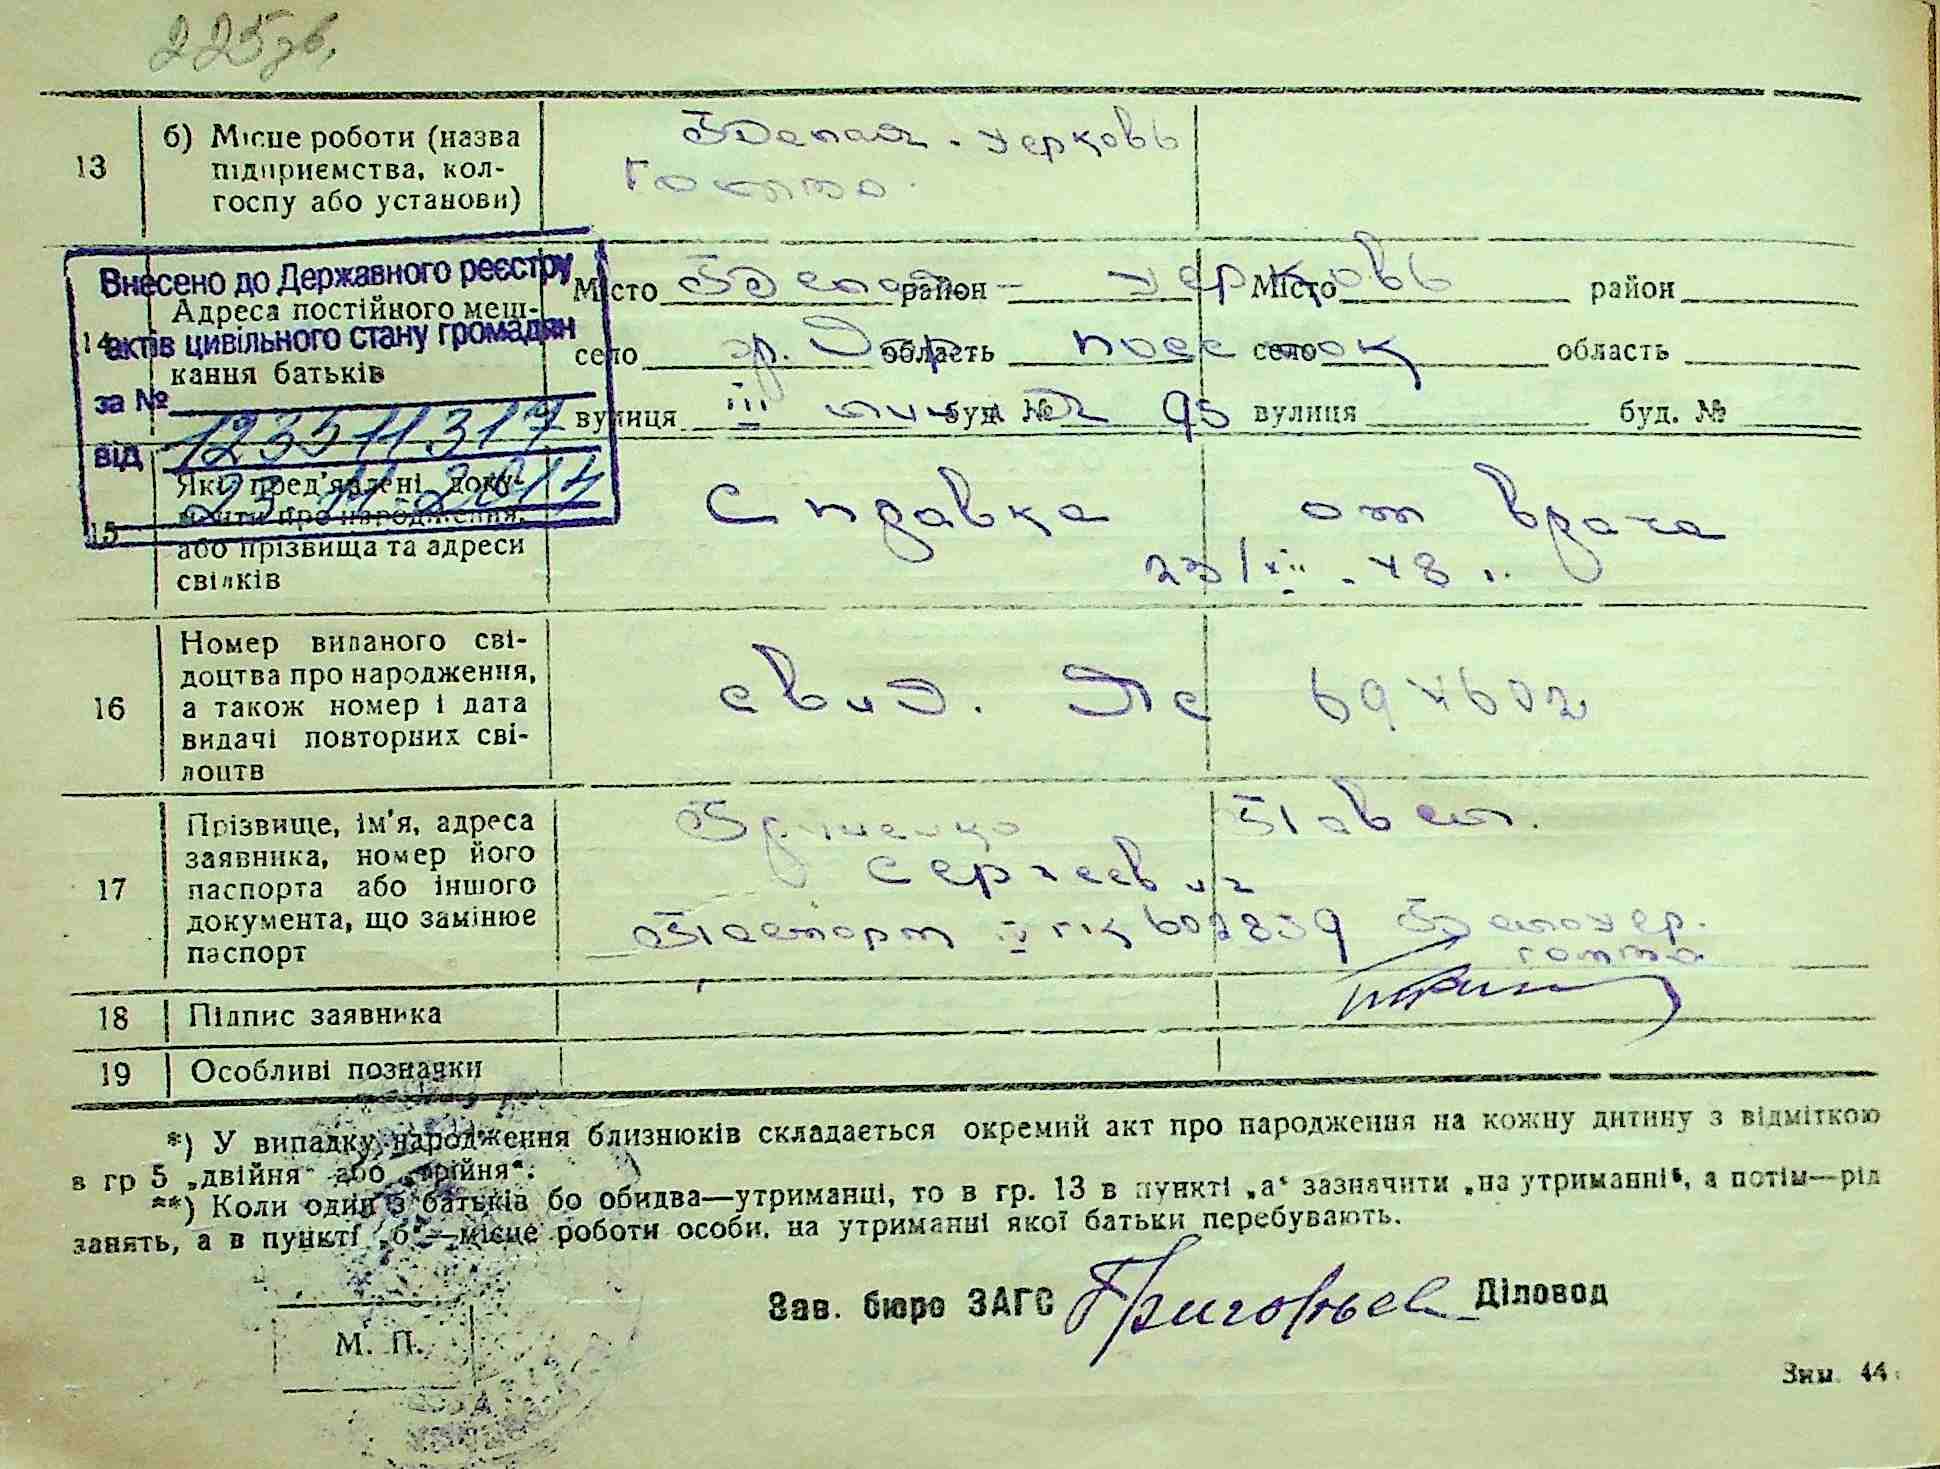 225 зв.
13
б) Місце роботи (назва
підприємства, кол-
госпу або установи)
Белая-Церковь
Внесено до Державного реєстру
актів цивільного стану громадян
за № 12351131
від 23.11.20
14
Адреса постійного меш-
кання батьків
Місто Белая район - Церковь Місто район
село гр. Дер область поселок село область
вулиця III линия буд. № 95 вулиця буд. №
15
Які пред'явлені доку-
менти про народження,
або прізвища та адреси
свідків
Справка от врача
23/XII.48 г.
16
Номер виданого сві-
доцтва про народження,
а також номер і дата
видачі повторних сві-
доцтв
свид.
17
Прізвище, ім'я, адреса
заявника, номер його
паспорта або іншого
документа, що замінює
паспорт
Гриценко Павел
Сергеевич
Паспорт IV 602839 Белоцер.
18
Підпис заявника
19
Особливі позначки
*) У випадку народження близнюків складається окремий акт про народження на кожну дитину з відміткою
в гр 5 „двійня“ або „трійня“.
**) Коли один з батьків бо обидва—утриманці, то в гр. 13 в пункті „а“ зазначити „на утриманні“, а потім—рід
занять, а в пункті „б“—місце роботи особи, на утриманні якої батьки перебувають.
Зав. бюро ЗАГС Григорьева Діловод
М. П.
Зам. 44